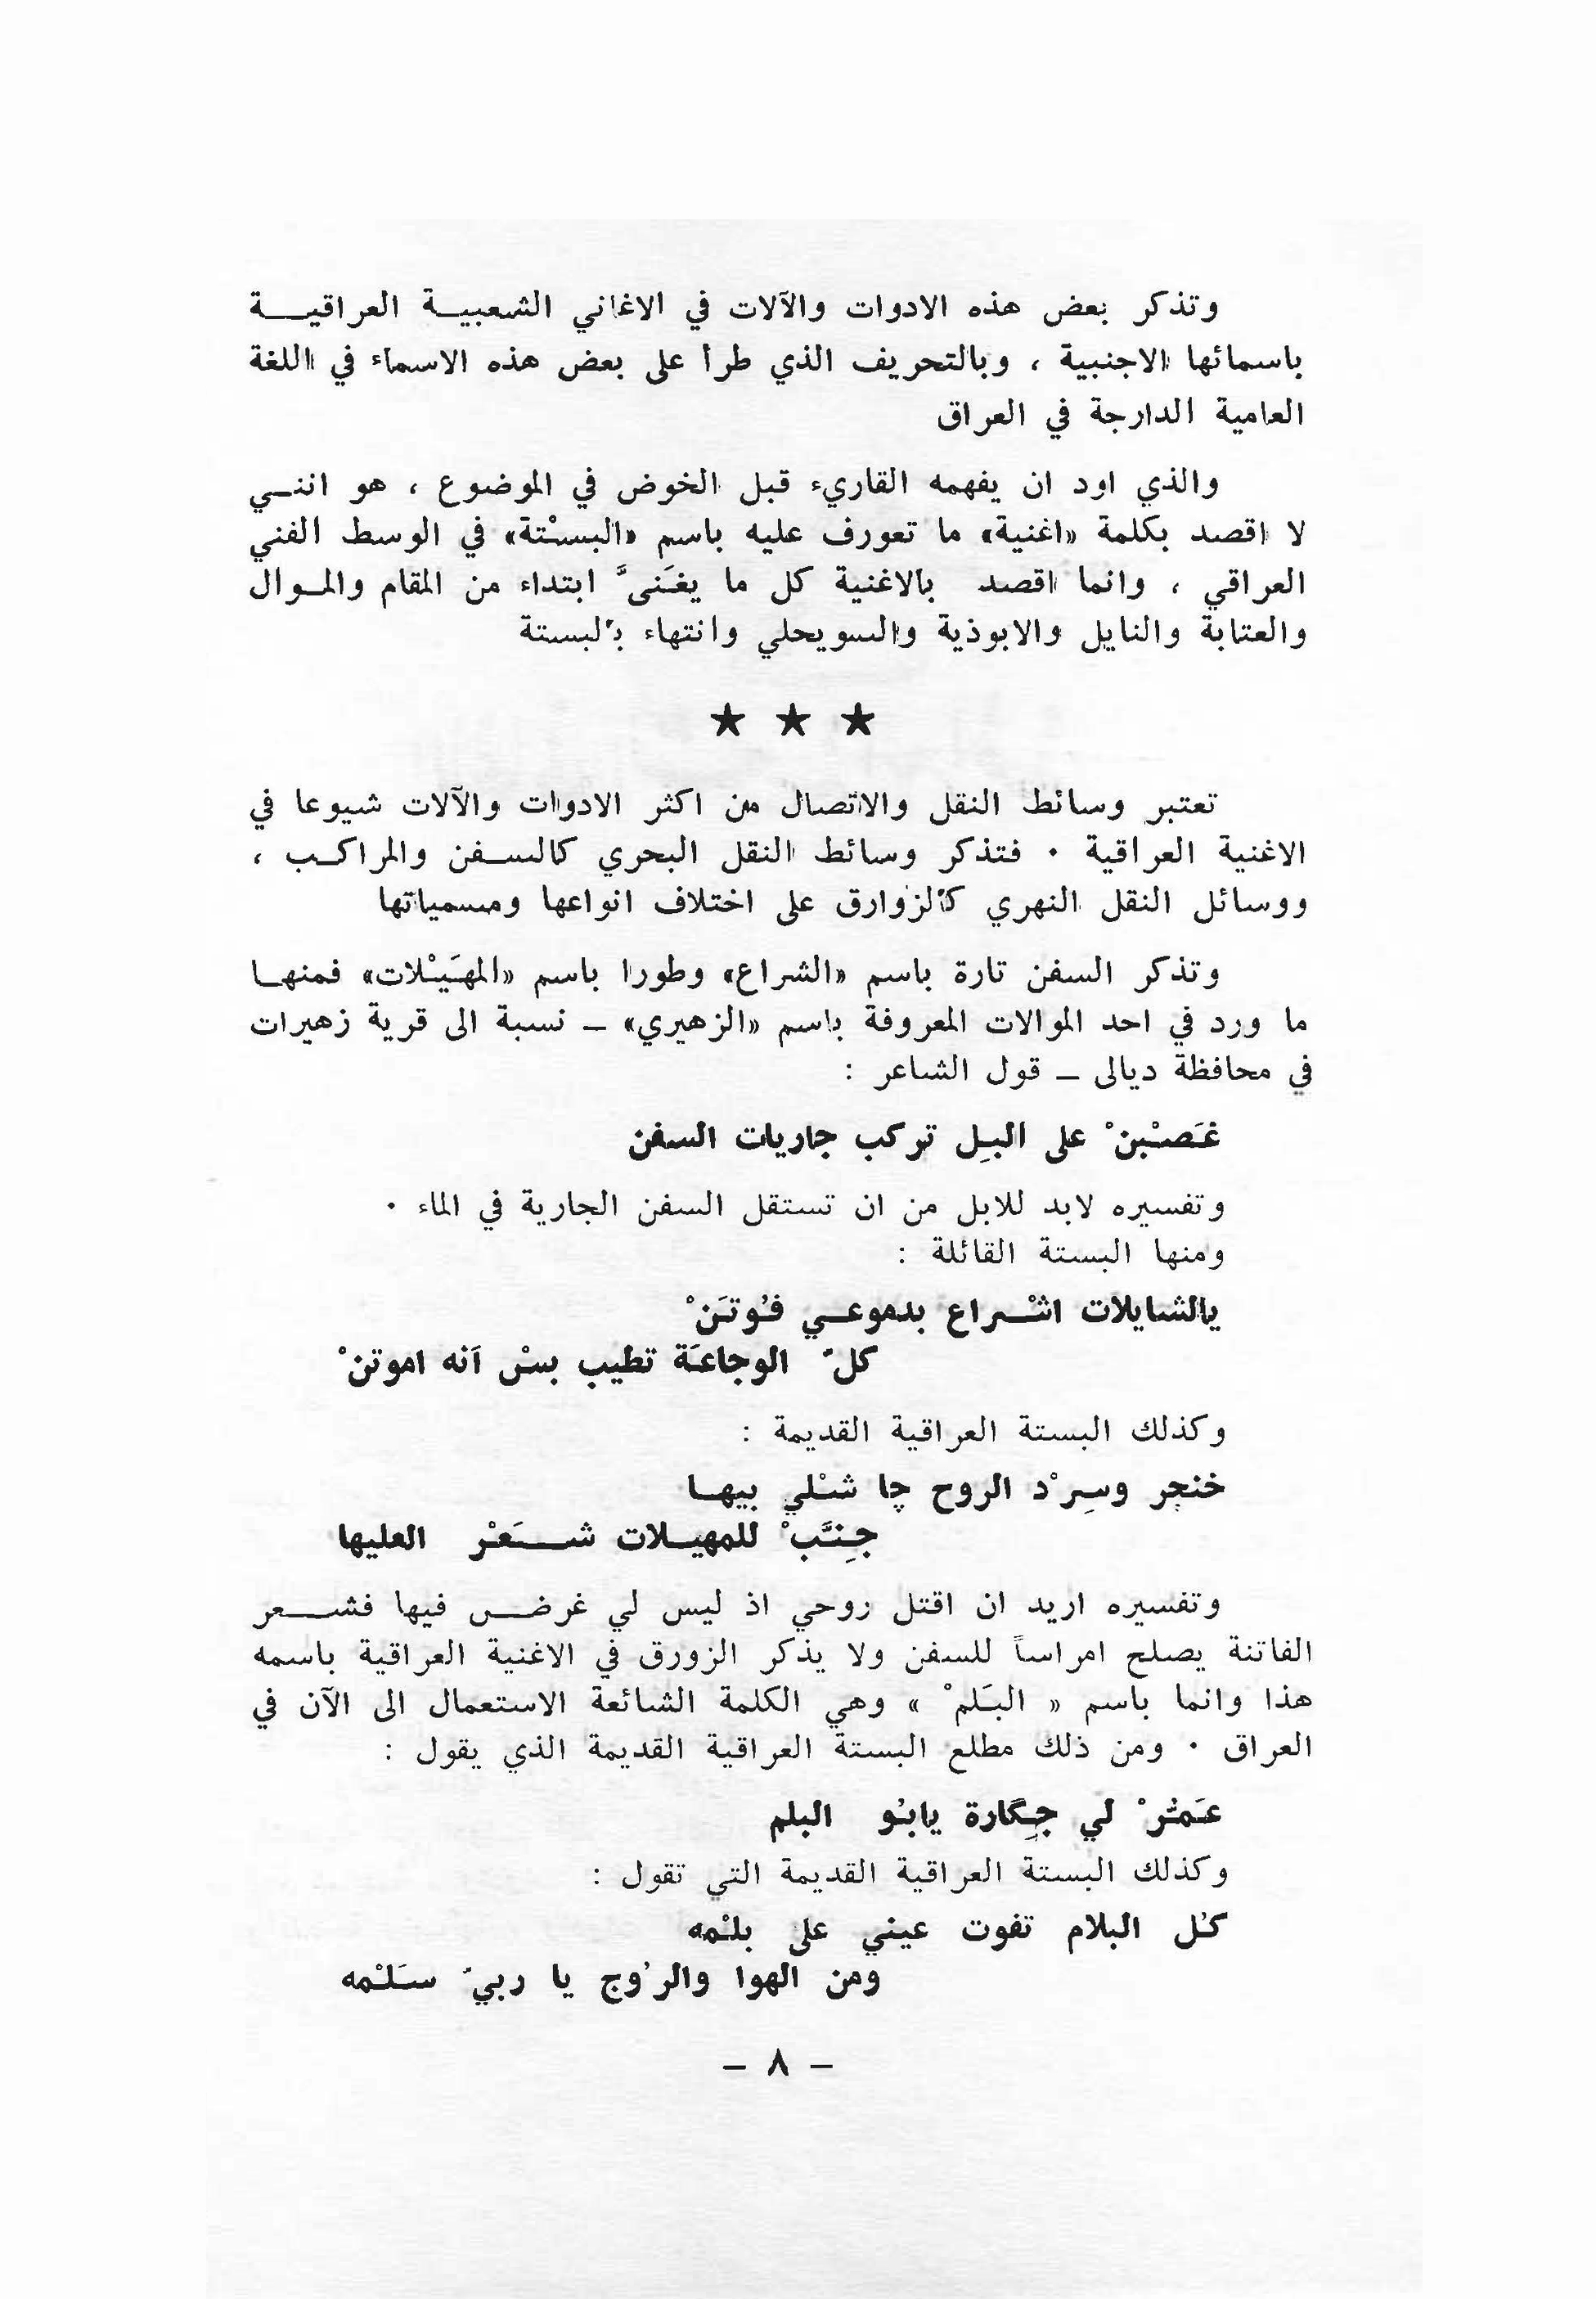 وتذكر بعض هذه الادوات والآلات في الاغاني الشعبية العراقية
باسمائها الاجنبية ، وبالتحريف الذي طرأ على بعض هذه الاسماء في اللغة
العامية الدارجة في العراق
والذي اود ان يفهمه القاريء قبل الخوض في الموضوع ، هو انني
لا اقصد بكلمة «اغنية» ما تعورف عليه باسم «البسْتة» في الوسط الفني
العراقي ، وانما اقصد بالاغنية كل ما يغَنىَّ ابتداء من المقام والموال
والعتابة والنايل والابوذية والسويحلي وانتهاء بالبستة
★ ★ ★
تعتبر وسائط النقل والاتصال من اكثر الادوات والآلات شيوعا في
الاغنية العراقية ٠ فتذكر وسائط النقل البحري كالسفن والمراكب ،
ووسائل النقل النهري كالزوارق على اختلاف انواعها ومسمياتها
وتذكر السفن تارة باسم «الشراع» وطورا باسم «المهَيْلات» فمنها
ما ورد في احد الموالات المعروفة باسم «الزهيري» – نسبة الى قرية زهيرات
في محافظة ديالى – قول الشاعر :
غَصْبنْ على البِل تركب جاريات السفن
وتفسيره لابد للابل من ان تستقل السفن الجارية في الماء ٠
ومنها البستة القائلة :
يالشايلات اشْراع بدموعي فُوتَنْ
كلّ الوجاعَة تطيب بسْ آنه اموتنْ
وكذلك البستة العراقية القديمة :
خنجر وسِرْد الروح چا شنْلي بيها
جِنَّبْ للمهيلات شَعْر العليها
وتفسيره اريد ان اقتل روحي اذ ليس لي غرض فيها فشعر
الفاتنة يصلح امراساً للسفن ولا يذكر الزورق في الاغنية العراقية باسمه
هذا وانما باسم « البَلمْ » وهي الكلمة الشائعة الاستعمال الى الآن في
العراق ٠ ومن ذلك مطلع البستة العراقية القديمة الذي يقول :
عَمّرْ لي جِگارة يابُو البلم
وكذلك البستة العراقية القديمة التي تقول :
كُل البلام تفوت عيني على بلْمه
ومن الهوا والرُوج يا ربيّ سَلْمه
– ٨ –